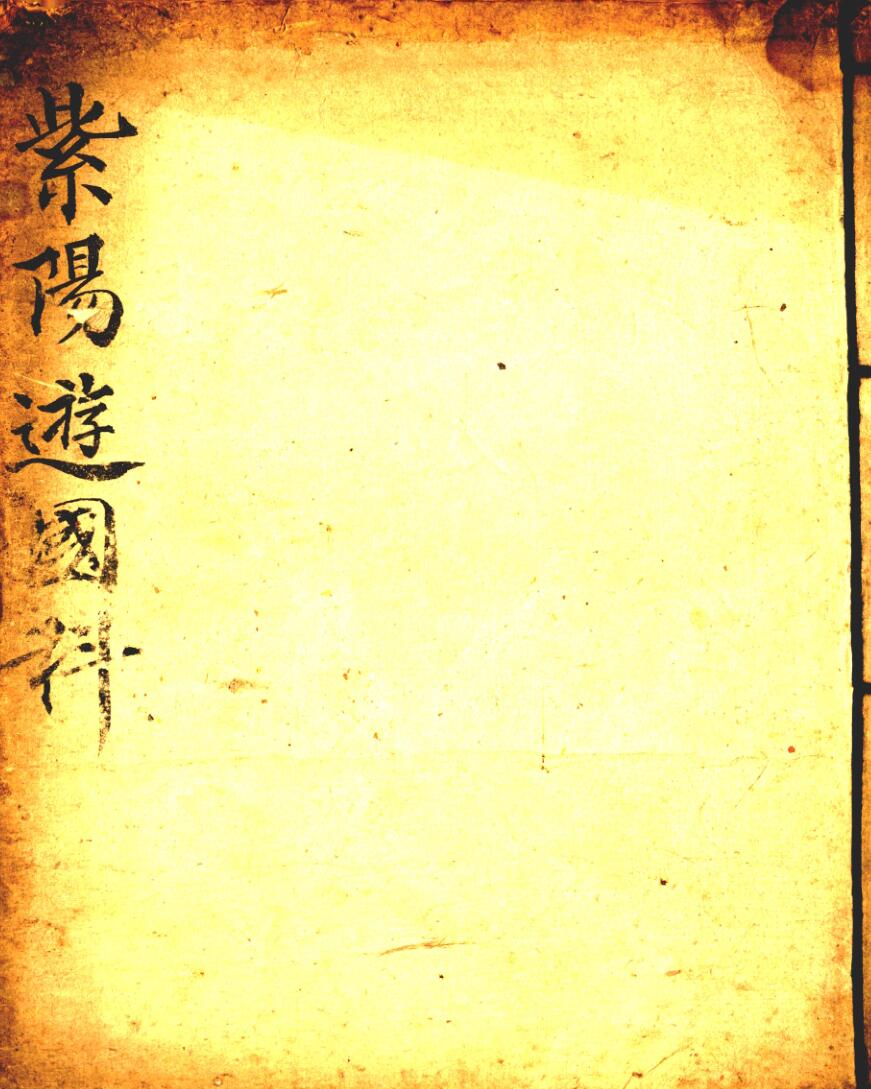 紫陽遊國科